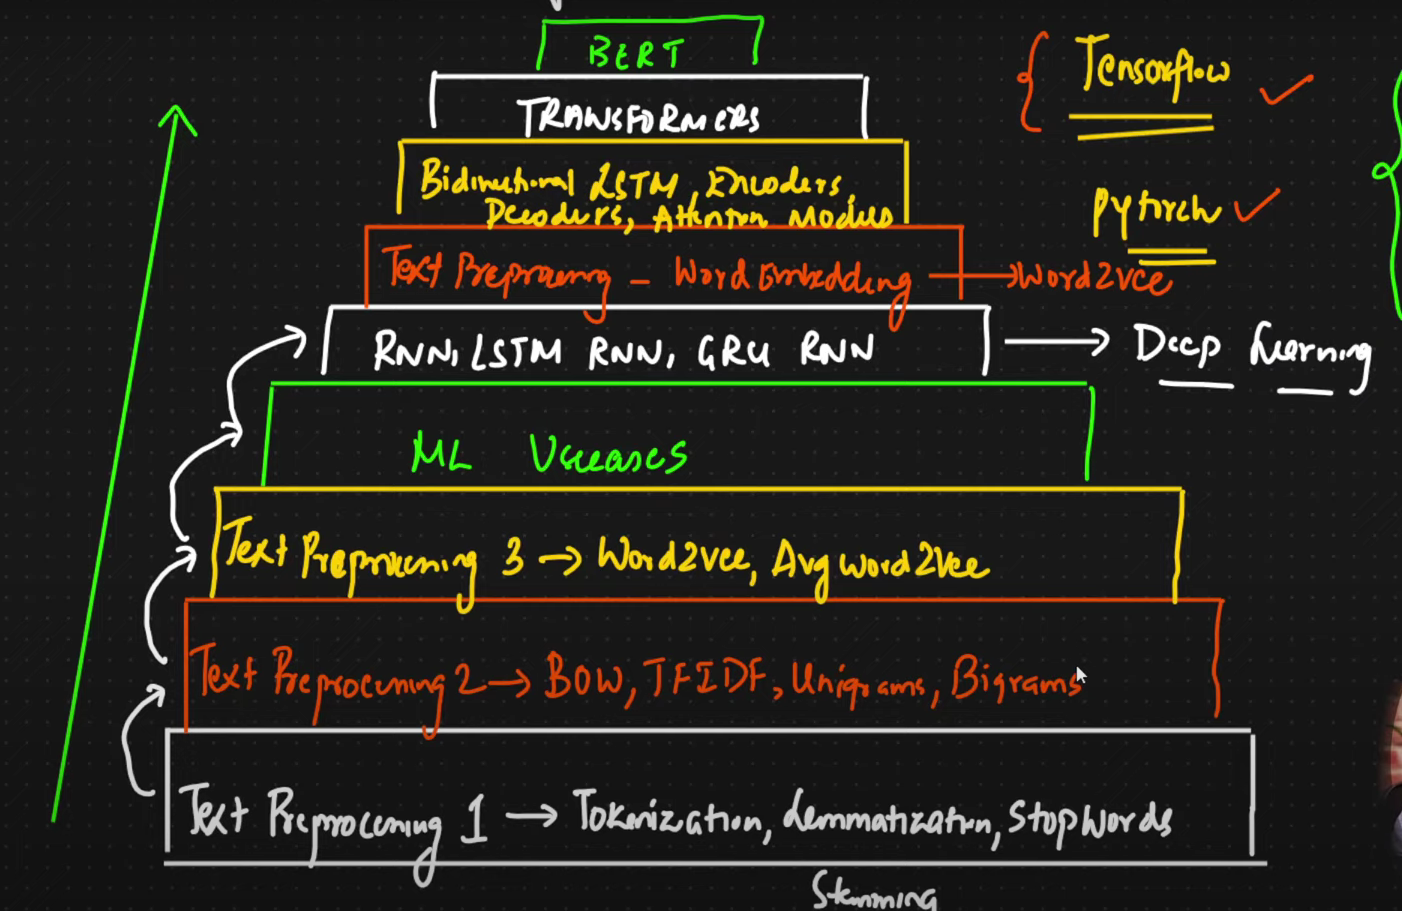 BERT
TRANSFORMERS
Bidirectional LSTM, Encoders,
Decoders, Attention Models
Text Preprocessing - Word Embedding → Word2vec
RNN, LSTM RNN, GRU RNN → Deep Learning
ML Usecases
Text Preprocessing 3 → Word2vec, AvgWord2vec
Text Preprocessing 2 → BOW, TFIDF, Unigrams, Bigrams
Text Preprocessing 1 → Tokenization, Lemmatization, StopWords
Stemming
Tensorflow
Pytorch